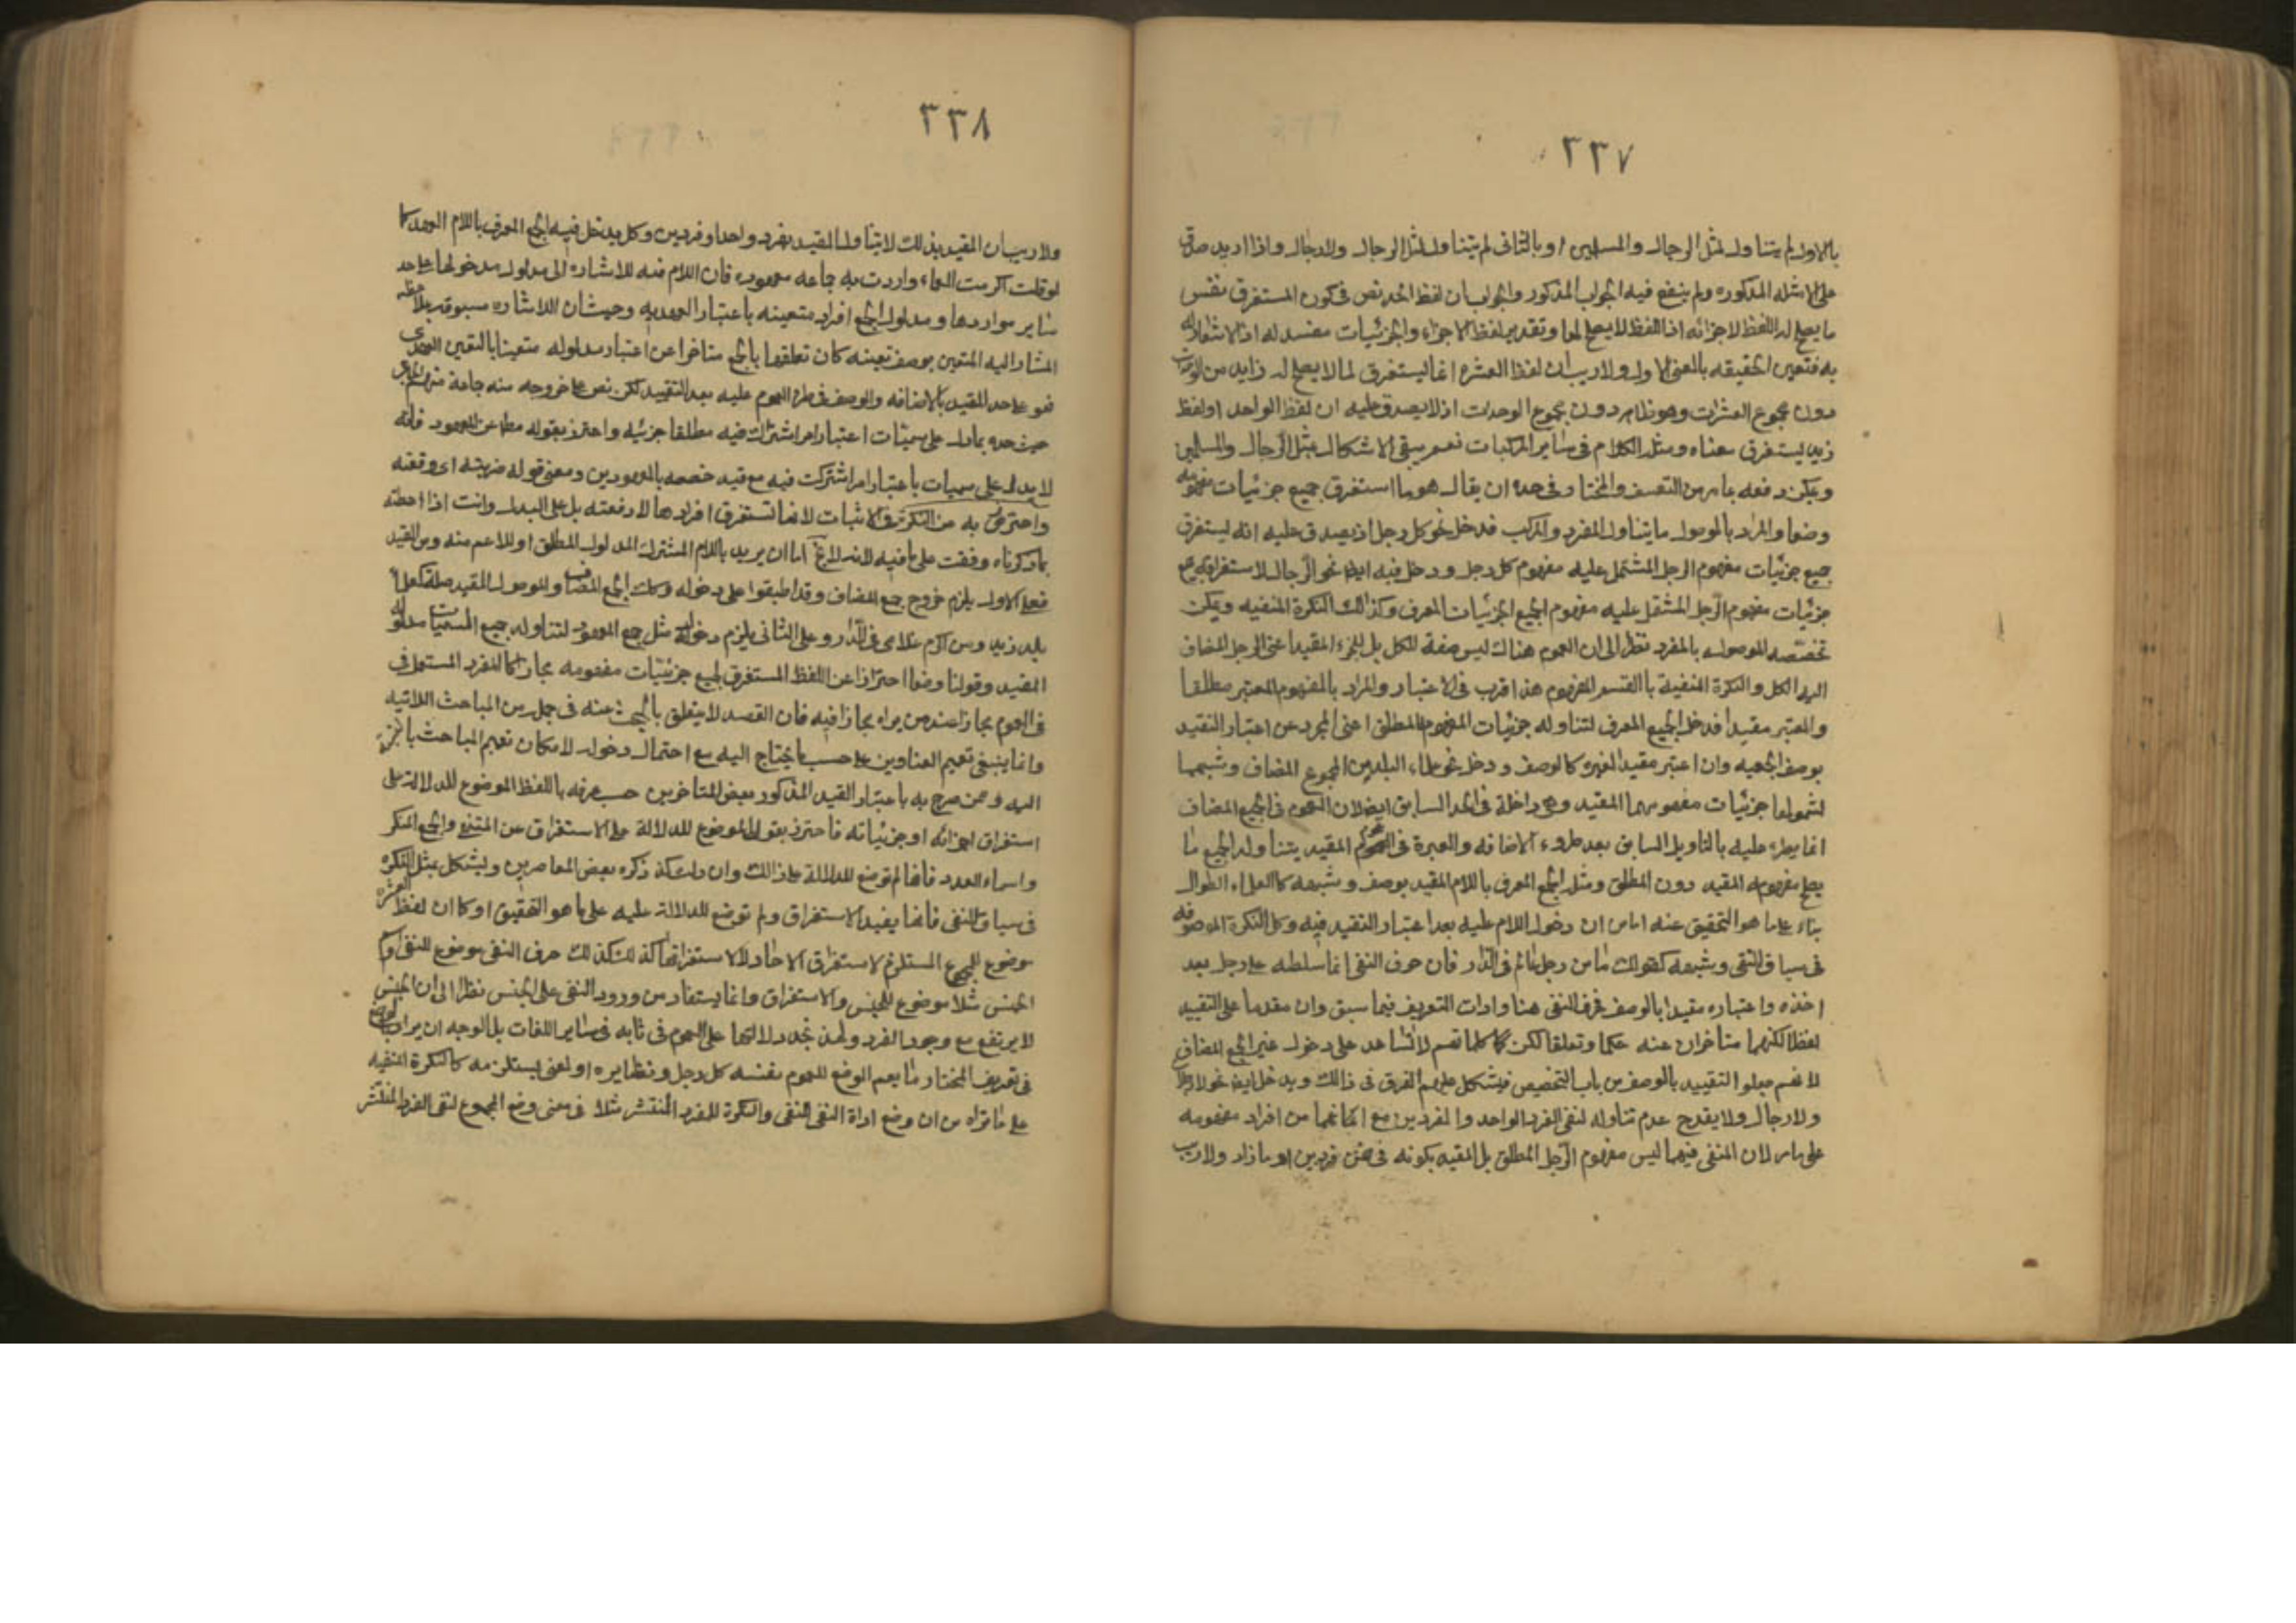 ٣٣٧
بالاول لم يتناول لمثل الرجال والمسلمين او بالثانى لم يتناول لمثل الرجال والدجال واذا اريد صدق
على الامثله المذكوره ولم ينفع فيه الجواب المذكور والجواب ان لفظ الحد نص فى كون المستغرق نفس
ما يصلح له اللفظ لاجزائه اذ اللفظ لا يصلح لها وتقدير لفظ الاجزاء والجزئيات مفسد له اذ لا اشعار له
به فتعين الحقيقه بالمعنى الاول ولا ريب ان لفظ العشره انما يستغرق لما لا يصلح له زايد من
دون مجموع العشرات وهو ظاهر دون مجموع الوحدات اذ لا يصدق عليه ان لفظ الواحد او لفظ
زيد يستغرق معناه ومثله الكلام فى ساير المركبات نعم يبقى الاشكال بمثل الرجال والمسلمين
ويمكن دفعه بما مر من التعسف والمختار فى حده ان يقال هو ما استغرق جميع جزئيات مفهومه
وضعا والمراد بالموصول ما يتناول المفرد والمركب فدخل نحو كل رجل اذ يصدق عليه انه يستغرق
جميع جزئيات مفهوم الرجل المشتمل عليه مفهوم كل رجل ودخل فيه ايضا نحو الرجال لاستغراقه جميع
جزئيات مفهوم الرجل المشتمل عليه مفهوم الجمع الجزئيات المعرف وكذلك النكرة المنفيه ويمكن
تخصيصه الموصول بالمفرد نظرا الى ان العموم هناك ليس صفة للكل بل للجزء المقيد اعنى الرجل المضاف
اليه الكل والنكرة المنفية بالقسم المفهوم هذا اقرب فى الاعتبار والمراد بالمفهوم المعتبر مطلقا
والمعتبر مقيدا فدخل الجمع المعرف لتناوله جزئيات المفهوم المطلق اعنى المجرد عن اعتبار التقييد
بوصف الجمعيه وان اعتبر مقيدا لغيره كالوصف ودخل نحو علماء البلد من الجموع المضاف وشبهها
لشمولها جزئيات مفهومها المقيد وهى داخلة فى الحد السابق ايضا لان العموم فى الجمع المضاف
انما يطرء عليه بالتاويل السابق بعد طروء الاضافه والعبرة فى العموم المقيد يتناوله الجمع ما
يصلح مفهومه المقيد دون المطلق ومثله الجمع المعرف باللام المقيد بوصف وشبهه كالعلماء الطوال
بناء على ما هو التحقيق عنه اما من ان دخول اللام عليه بعد اعتبار التقييد فيه وكذا النكرة الموصوفه
فى سياق النفى وشبهه كقولك ما من رجل عالم فى الدار فان حرف النفى انما سلطه على رجل بعد
اخذه واعتباره مقيدا بالوصف فحرف النفى هنا وادات التعريف فيما سبق وان مقدما على التقييد
لفظا لكنهما متاخران عنه حكما وتعلقا لكن كلماتهم لا تساعد على دخول غير الجمع المضاف
لانهم جعلوا التقييد بالوصف من باب التخصيص فيشكل عليهم الفرق فى ذالك ويدخل ايضا نحو لا رجل
ولا رجال ولا يقدح عدم تناوله لنفى الفرد الواحد والفردين مع انهما من افراد مفهومه
على ما مر لان المنفى فيهما ليس مفهوم الرجل المطلق بل المقيد بكونه فى ضمن فردين او ما زاد ولا ريب
٣٣٨
ولا ريب ان المقيد بذلك لا يتناول المقيد بفرد واحد او فردين وكل يدخل فيه الجمع المعرف باللام العهد كما
لو قلت اكرمت العلماء واردت به جماعه معهوده فان اللام فيه للاشاره الى مدلول مدخولها على حد
ساير مواردها ومدلول الجمع افراد متعينه باعتبار العهديه وحيث ان الاشاره مسبوقه بملاحظه
المشار اليه المتعين بوصف تعينه كان تعلقها بالجمع متاخرا عن اعتبار مدلوله متعينا بالتعين العهدى
فهو على حد المقيد بالاضافه والوصف فى طرء العموم عليه بعد التقييد لكن نص على خروجه منه جماعة منهم
حيث حده بما دل على مسميات باعتبار امر اشتركت فيه مطلقا ضربة واحترز بقوله مطلقا عن المعهود فانه
لا يدل على مسميات باعتبار امر اشتركت فيه مع قيد خصصه بالمعهودين ومعنى قوله ضربته اى دفعته
واحترز به عن النكرة فى الاثبات لانها تستغرق افرادها لا دفعته بل على البدل وانت اذا احطت
بما ذكرناه وقفت على ما فيه لانه اما ان يريد باللام المشترك المدلول المطلق او للاعم منه ومن المقيد
فعلى الاول يلزم خروج جمع المضاف وقد اطبقوا على دخوله وكذلك الجمع المضاف والموصول المقيد صلته كعلماء
بلد زيد ومن اكرم غلامى فى الدار وعلى الثانى يلزم دخول مثل جمع المعهود لتناوله جميع المسميات مدلوله
المقيد وقولنا وضعا احترازا عن اللفظ المستغرق لجميع جزئيات مفهومه مجازا كالمفرد المستعمل فى
العموم مجازا عند من يراه مجازا فيه فان القصد لا يتعلق بالبحث عنه فى جمله من المباحث الاتيه
وانما ينبغى تعميم العناوين على حسب ما يحتاج اليه مع احتمال دخوله لامكان تعميم المباحث بالنسبة
اليه وممن صرح به باعتبار القيد المذكور بعض المتاخرين حيث عرفه باللفظ الموضوع للدلالة على
استغراق اجزائه او جزئياته فاحترز بقوله الموضوع للدلالة على الاستغراق عن المثنى والجمع المنكر
واسماء العدد فانها لم توضع للدلالة على ذالك وان دلت كذا ذكره بعض المعاصرين ويشكل بمثل النكره
فى سياق النفى فانها يفيد الاستغراق ولم توضع للدلالة عليه على ما هو التحقيق او كما ان لفظ العشره
موضوع للمجموع المستلزم لاستغراق الاحاد لا لاستغراقها كذلك كذلك حرف النفى موضوع للنفى واسم
الجنس مثلا موضوع للجنس والاستغراق وانما يستفاد من ورود النفى على الجنس نظرا الى ان الجنس
لا يرتفع مع وجود الفرد ولهذا نجد دلالتها على العموم ثابته فى ساير اللغات بل الوجه ان يراد بالوضع
فى تعريف المختار ما يعم الوضع للعموم بنفسه ككل رجل ونظايره او لمعنى يستلزمه كالنكرة المنفيه
على ما تراه من ان وضع اداة النفى للنفى والنكرة للفرد المنتشر مثلا فى معنى وضع المجموع لنفى الفرد المنتشر